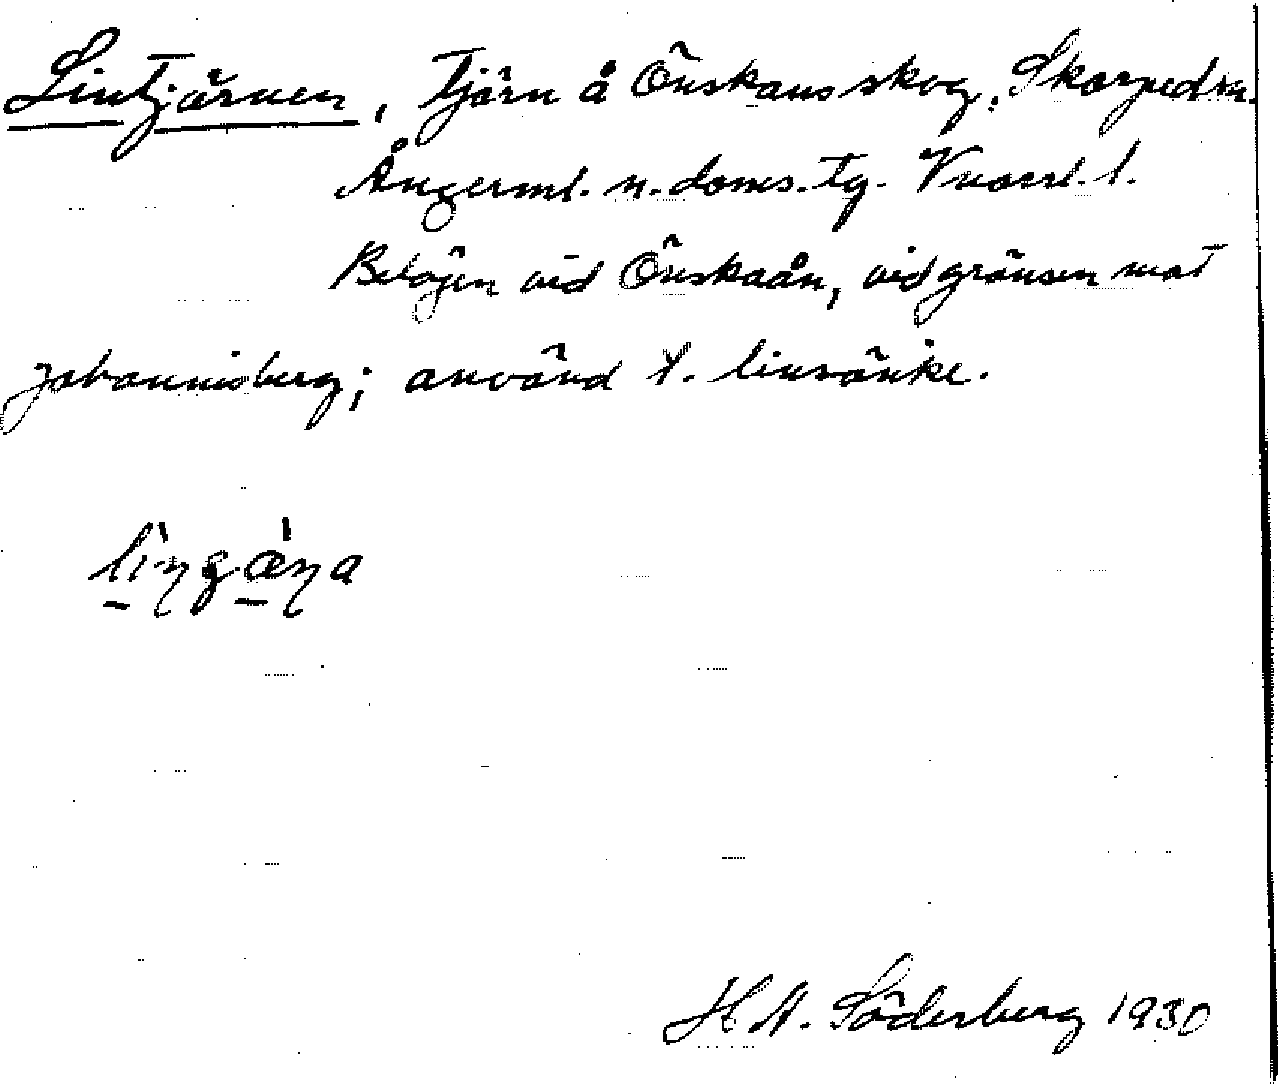 Lintjärnen, Tjärn å Önskans skog, Skorpeds sn.
Ångerml. n. doms. tg. Vnorrl. l.
Belägen vid Önskaån, vid gränsen mot
Johannisberg; använd t. linsänke.
lìŋgæ̀ŋa
H. A. Söderberg 1930